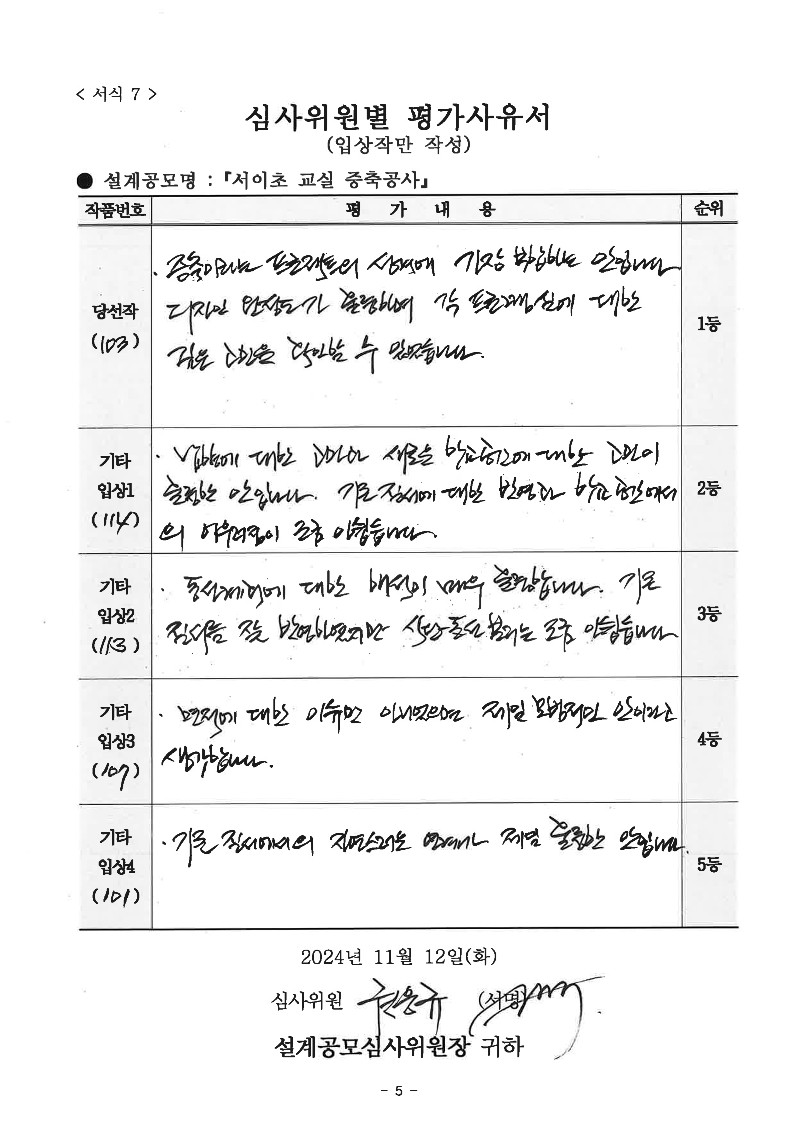 < 서식 7 >
심사위원별 평가사유서
(입상작만 작성)
● 설계공모명 : 『서이초 교실 증축공사』
작품번호 평 가 내 용 순위
당선작
(103)
· 증축이라는 프로젝트의 성격에 가장 부합하는 안입니다
디자인 완성도가 훌륭하며 각 프로그램실에 대한
깊은 고민을 확인할 수 있었습니다.
1등
기타
입상1
(114)
· 법규에 대한 고민과 새로운 학교공간에 대한 고민이
훌륭한 안입니다. 기존질서에 대한 반영과 학교공간에서
의 어우러짐이 조금 아쉽습니다.
2등
기타
입상2
(113)
· 동선계획에 대한 해석이 매우 훌륭합니다. 기존
질서를 잘 반영하였지만 식당동선 분리는 조금 아쉽습니다
3등
기타
입상3
(107)
· 면적에 대한 이슈만 아니었으면 제일 모범적인 안이라고
생각합니다.
4등
기타
입상4
(101)
· 기존 질서에서의 자연스러운 연계가 제법 훌륭한 안입니다.
5등
2024년 11월 12일(화)
심사위원 권용규 (서명)
설계공모심사위원장 귀하
- 5 -